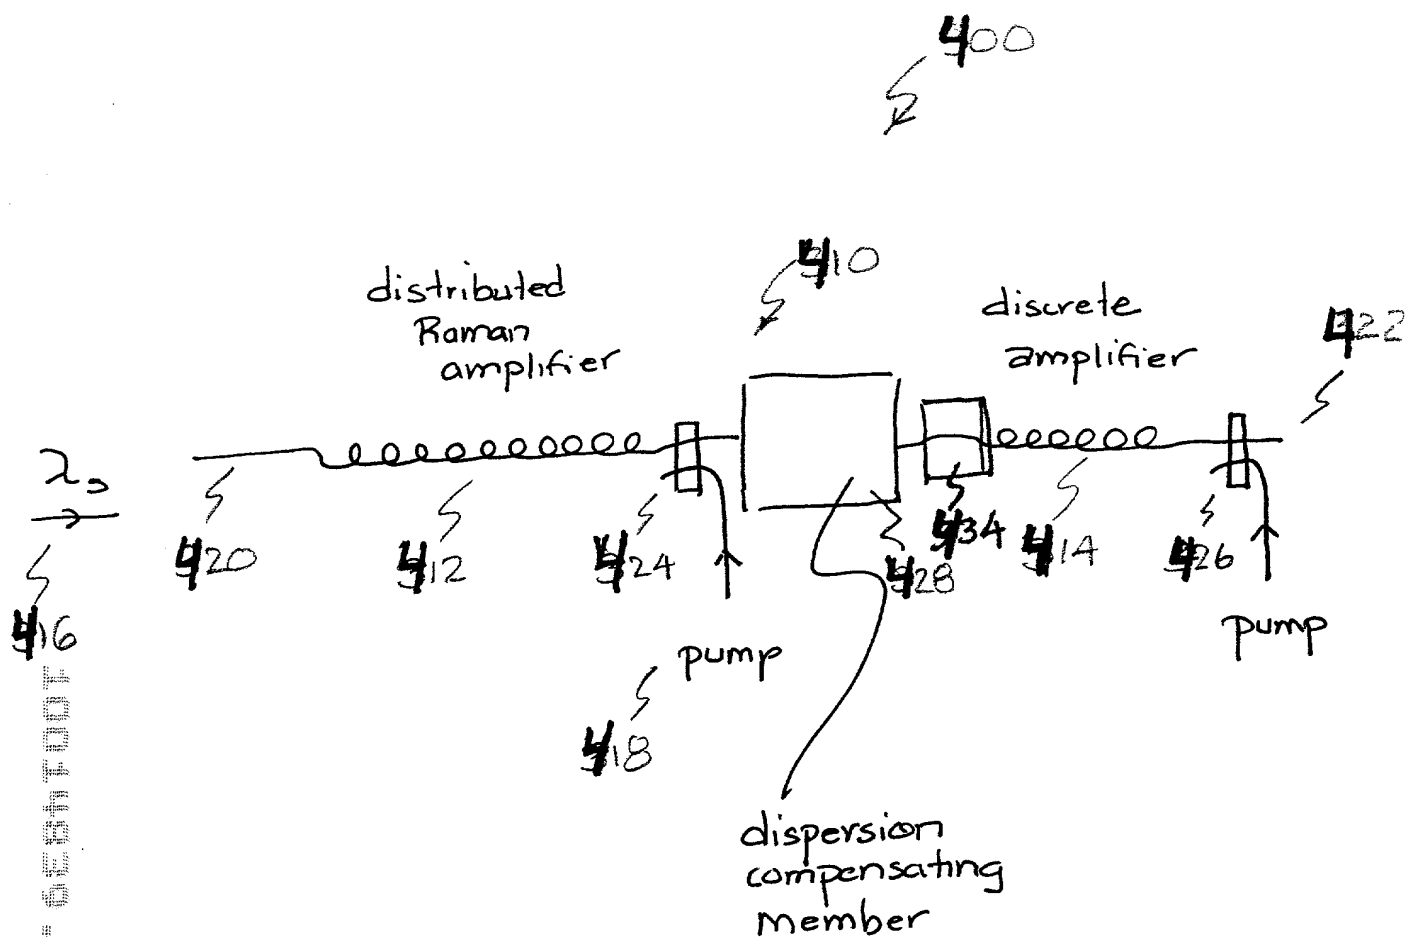 400
410
distributed
Raman
amplifier
discrete
amplifier
422
λs
420
412
424
434
414
426
428
416
pump
pump
418
dispersion
compensating
member